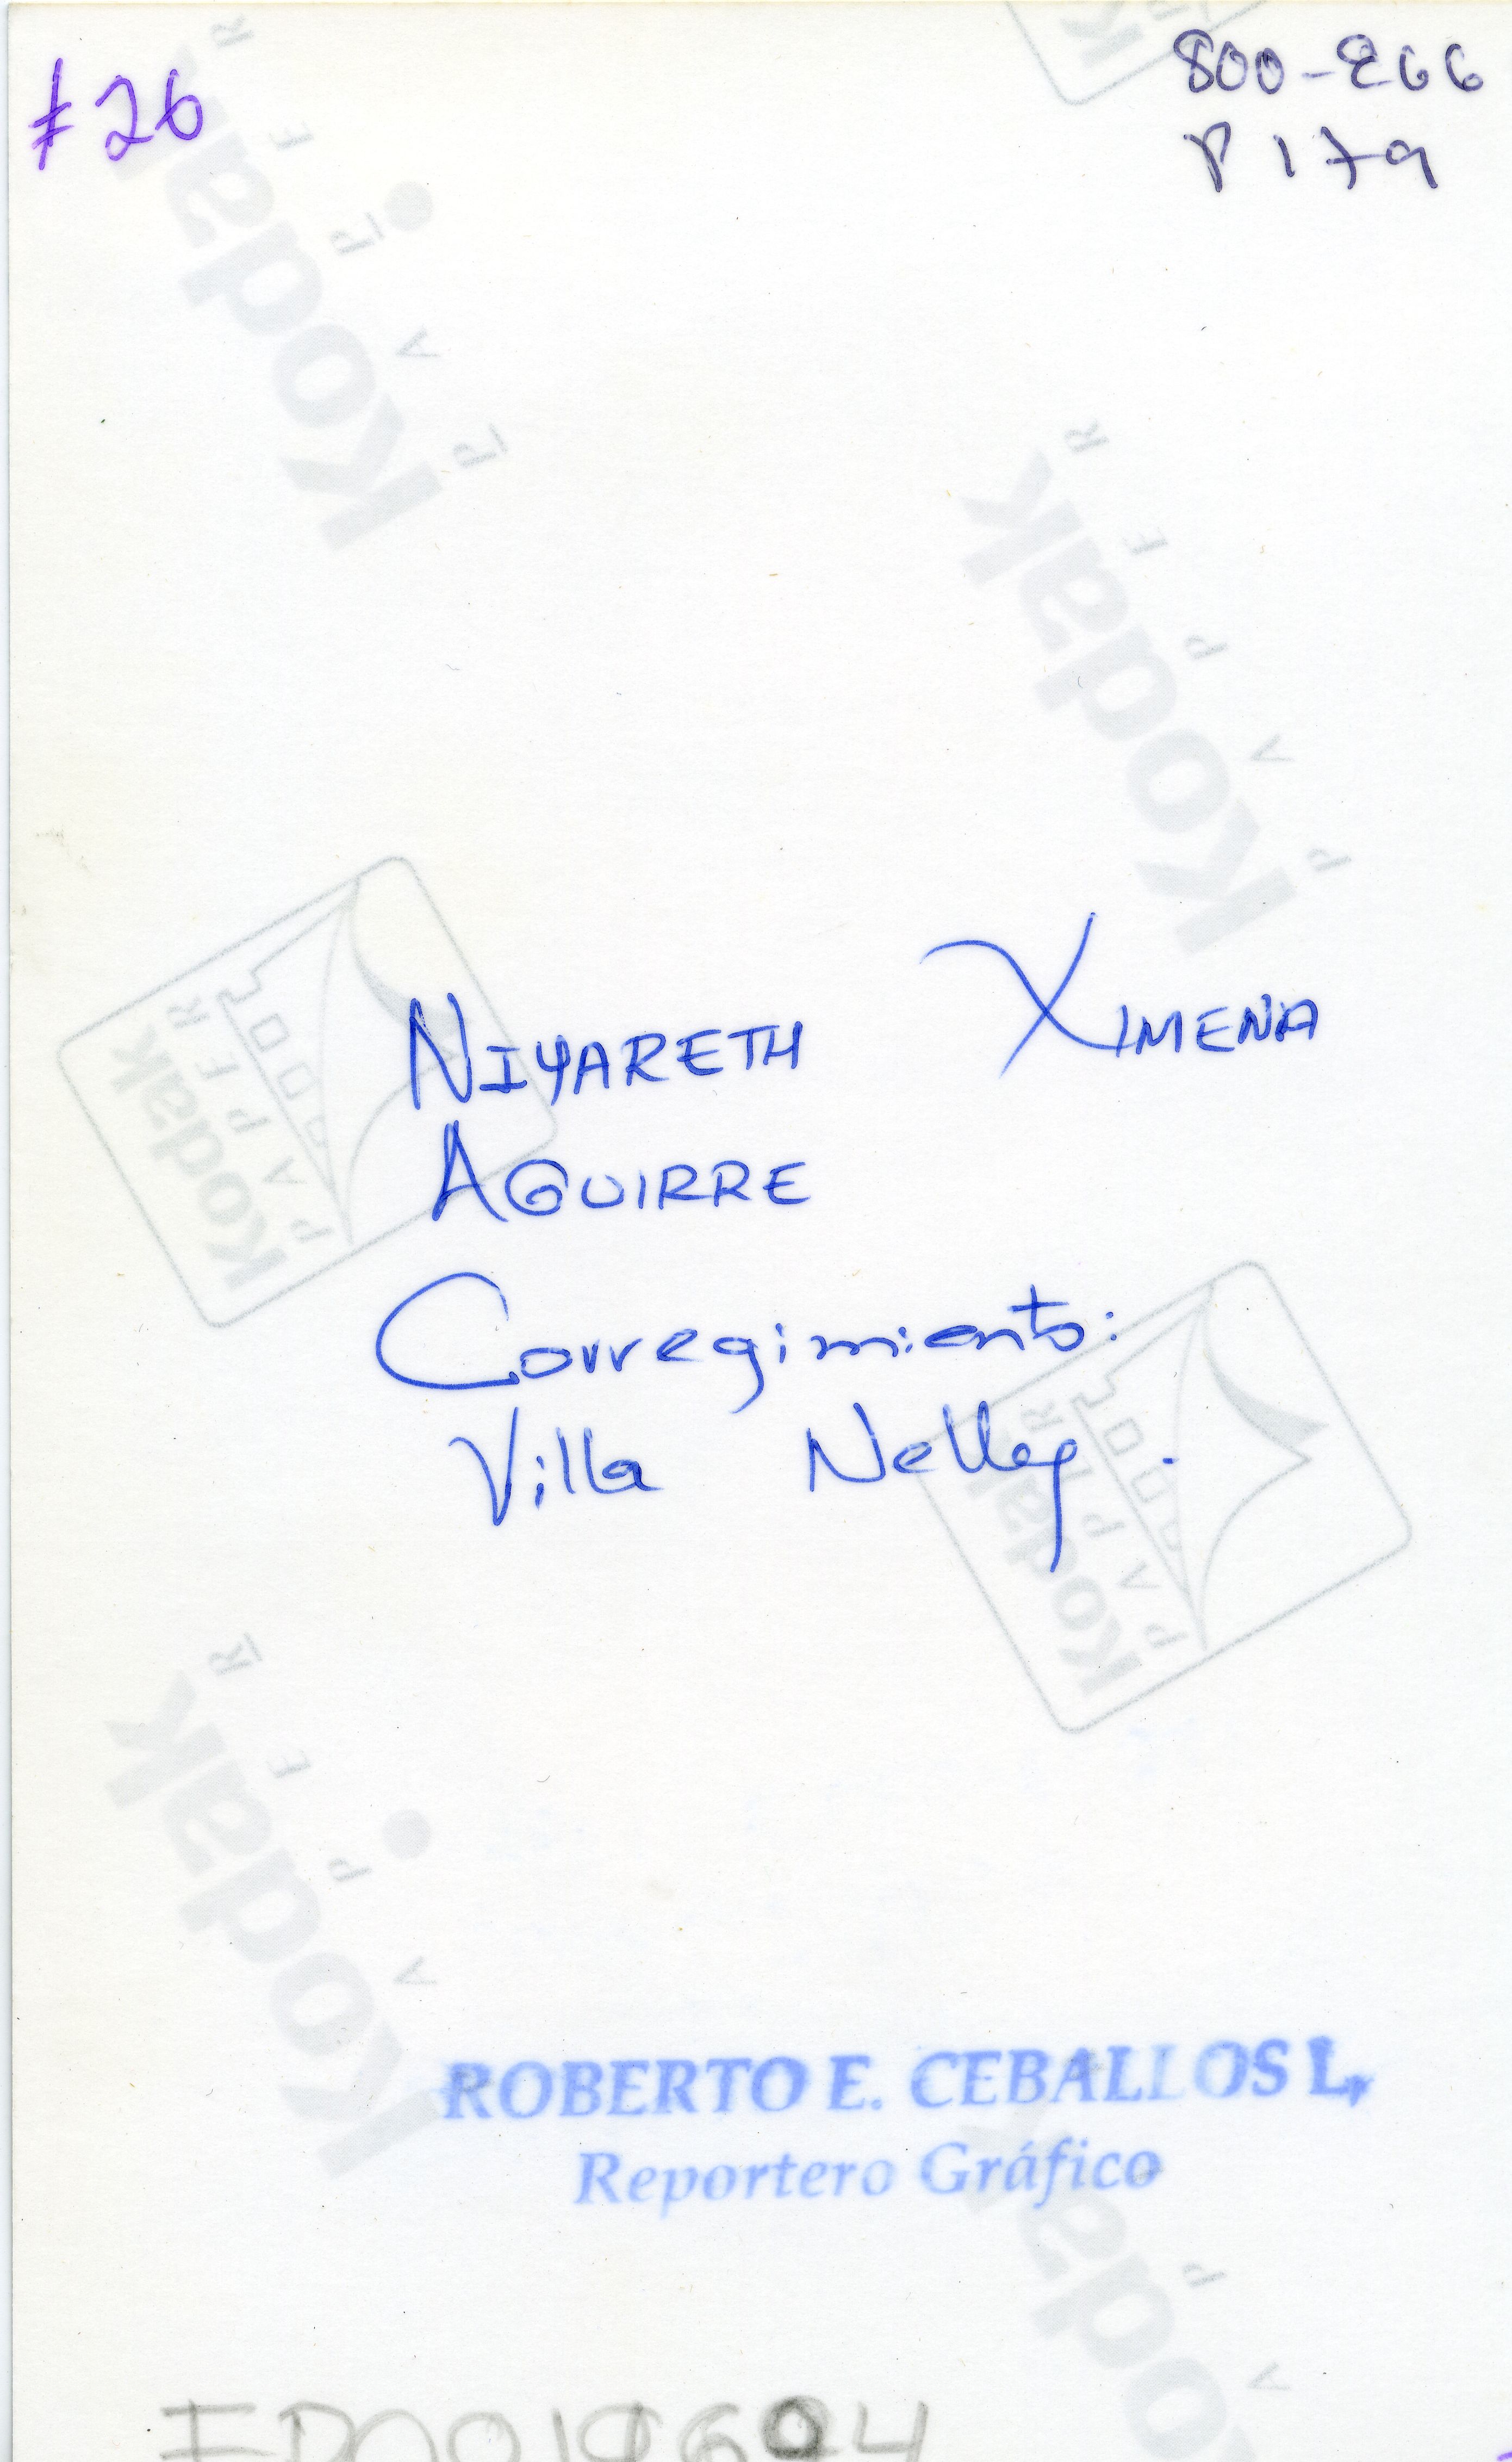 #26
800-266
P 179
NIYARETH XIMENA
AGUIRRE
Corregimiento:
Villa Nelly.
ROBERTO E. CEBALLOS L.
Reportero Gráfico
Kodak
PAPER
Kodak
PAPER
Kodak
PAPER
Kodak
PAPER
Kodak
PAPER